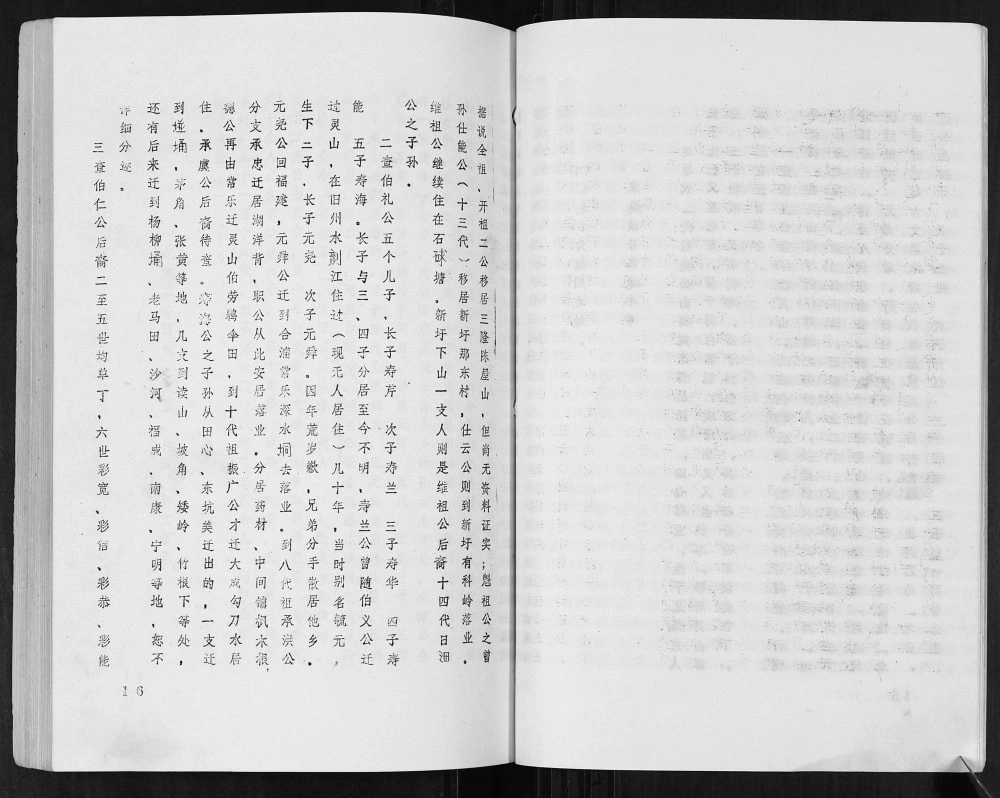 据说全祖、开祖二公移居三隆陈屋山，但尚无资料证实；魁祖公之曾
孙仕能公（十三代）移居新圩那东村，仕云公则到新圩有科岭落业。
维祖公继续住在石球塘。新圩下山一支人则是维祖公后裔十四代日湘
公之子孙。
二查伯礼公五个儿子，长子寿芹 次子寿兰 三子寿华 四子寿
能 五子寿海。长子与三、四子分居至今不明，寿兰公曾随伯义公迁
过灵山，在旧州水剅江住过（现无人居住）几十年，当时别名毓元，
生下二子，长子元尧 次子元舜。因年荒岁歉，兄弟分手散居他乡。
元尧公回福建，元舜公迁到合浦常乐深水垌去落业。到八代祖承洪公
分支承忠迁居湖洋背，职公从此安居落业。分居药材、中间铺枫木根，
公再由常乐迁灵山伯劳鸭伞田，到十代祖振广公才迁大成勾刀水居
住。承虞公后裔待查。寿海公之子孙从田心、东坑美迁出的，一支迁
到埇，茅角、张黄等地，几支到读山、坡角、矮岭、竹根下等处，
还有后来迁到杨柳埇、老马田、沙河、福成、南康、宁明等地，恕不
详细分述。
三查伯仁公后裔二至五世均单丁，六世彩宽、彩信、彩恭、彩能
16